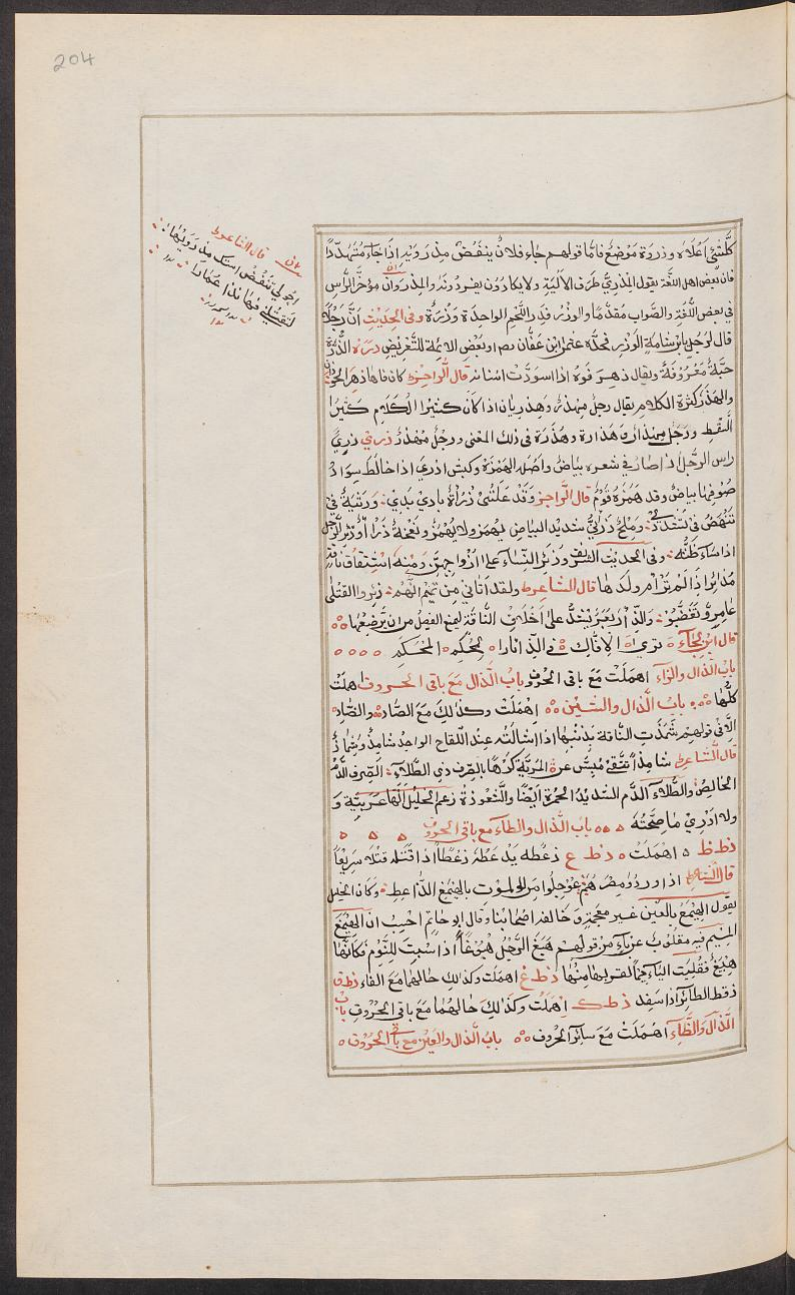 204
قال الشاعر
احولي تنفض استك مذرويها
لتقتلني فها نذا عمارا
كلشئ اعلاه وذروة موضع فاما قولهم جاء فلان ينفض مذرويه اذا جاء متهددا
فان بعض اهل اللغة يقول المذري طرف الالية ولا يكادون يفردونه والمذروان مؤخر الراس
في بعض اللغة والصواب مقدما والوذر قدر اللحم الواحدة وذرة وفى الحديث ان رجلا
قال لرجل يا بن شامة الوذر فحده عثمن ابن عفان
حبة معروفة ويقال ذهر فوه اذا اسودت اسنانه قال الراجز كان فاها ذهر
والهذر كثرة الكلام يقال رجل مهذر وهذريان اذا كان كثير الكلام كثير
السقط ورجل مهذار هذارة وهذرة في ذلك المعنى ورجل مهذر ذرئي ذرئ
راس الرجل اذا صار في شعره بياض واصله الهمزة وكبش اذرئ اذا خالط سواد
صوفها بياض وقد همزه قوم قال الراجز وقد علتنى ذرأة بادي بدي ورثية في
تنهض فى تشدد وملح ذرأني شديد البياض يهمز ولا يهمز ونعجة ذرأ
اذا ساء ظنه وفى الحديث ذئر النساء على ازواجهن ومنه اشتقاق ناقة
مذائر اذا لم ترأم ولدها قال الشاعر ولقد اتاني من تميم انهم ذئروا القتلى
عامر وتغضبوا والذئار بعر يشد على اخلاف الناقة ليمنع الفصيل من ان يرضعها
باب الذال والزاء اهملت مع باقى الحروف باب الذال مع باقى الحروف اهملت
كلها باب الذال والشين اهملت وكذلك مع الصاد والضاد
الا في قولهم شمذت الناقة بذنبها اذا شالته عند اللقاح الواحد شامذ وشماذ
قال الشاعر شامذا تتقي المبس عن المرية كرها بالصرف ذي الطلاء الصرف الدم
الخالص والطلاء الدم الشديد الحمرة ايضا والشعوذة زعم الخليل انها عربية و
ولا ادري ما صحته باب الذال والطاء مع باقى الحروف
ذ ط ظ اهملت ذ ط ع ذعطه يذعطه ذعطا اذا قتله قتلا سريعا
قال الشاعر اذا وردوا مصرهم عوجلوا من الموت بالهميغ الذاعط وكان الخليل
يقول الهميع بالعين غير معجمة وخالفه اصحابنا وقال ابو حاتم احسب ان الهميغ
الميم فيه مقلوب عن باء من قولهم هبغ الرجل هبوغا اذا سبت للنوم فكانها
هبيغ فقلبت الباء ميما لقربها منها ذ ط غ اهملت وكذلك حالهما مع الفاء ذ ط ق
ذقط الطائر اذا سفد ذ ط ك اهملت وكذلك حالهما مع باقى الحروف باب
الذال والظاء اهملت مع سائر الحروف باب الذال والعين مع باقى الحروف